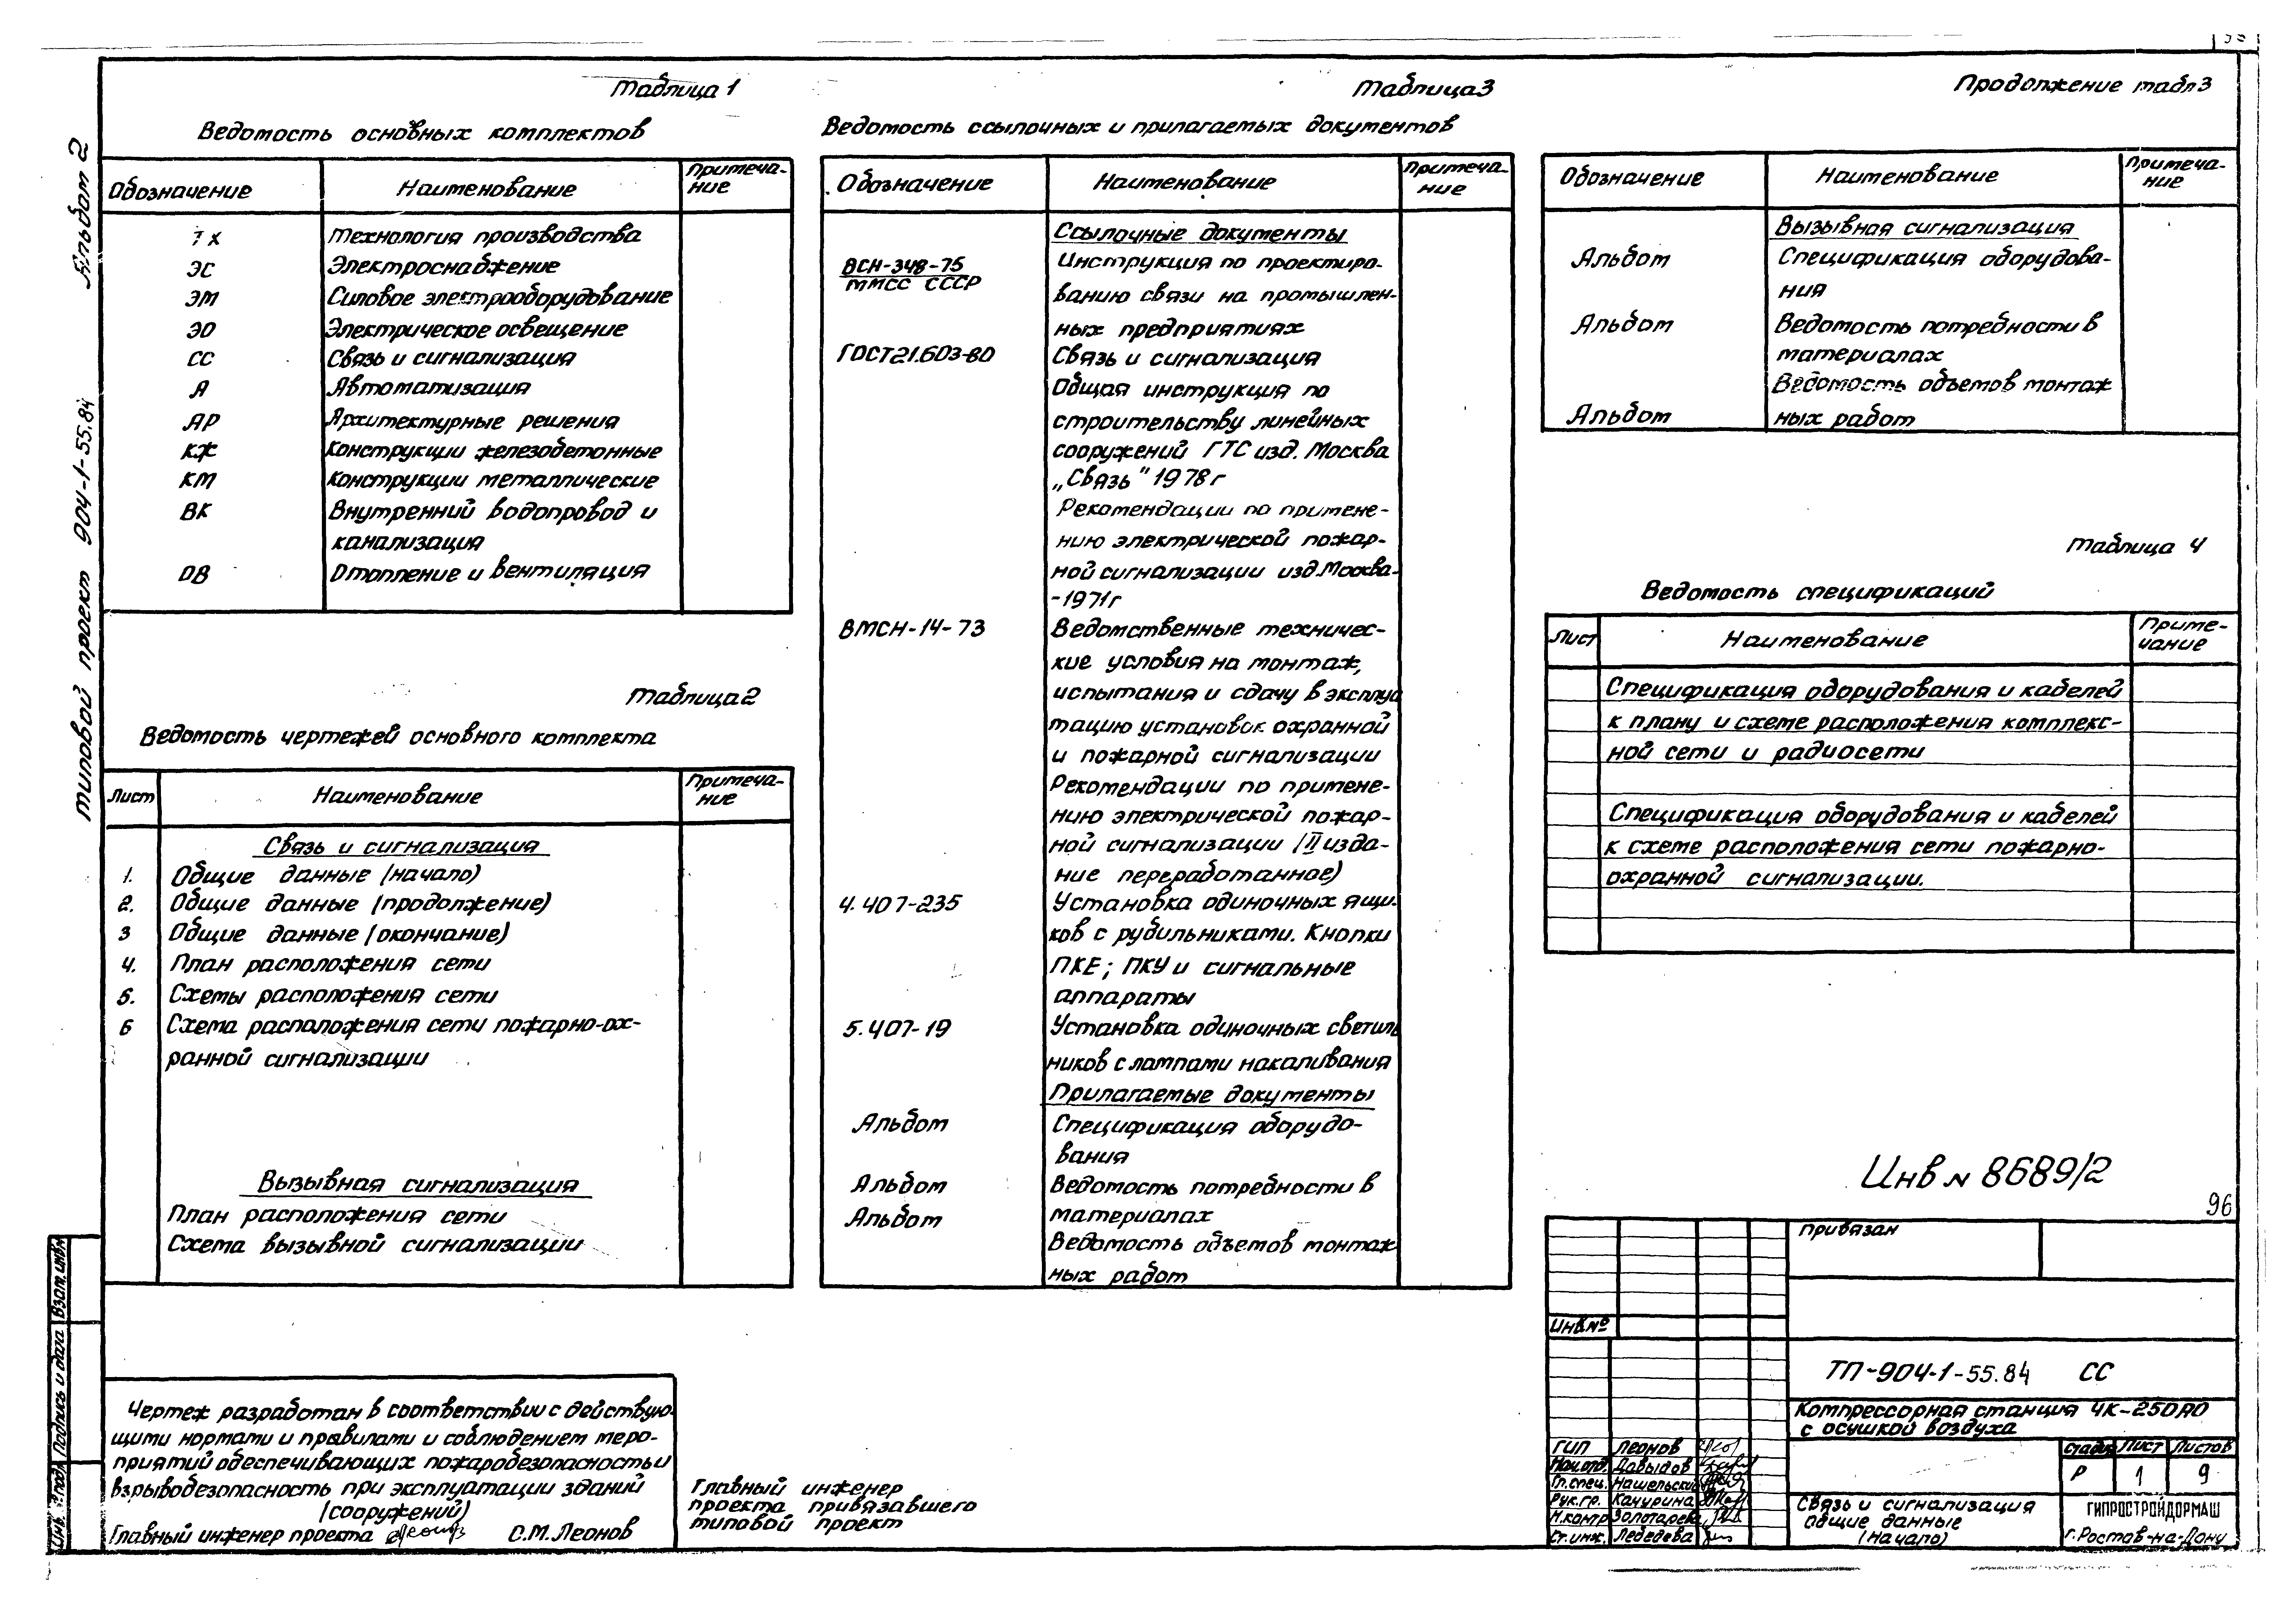 Альбом 2
типовой проект 904-1-55.84
Таблица 1
Ведомость основных комплектов
Обозначение Наименование Примеча-
ние
ТХ Технология производства
ЭС Электроснабжение
ЭМ Силовое электрооборудование
ЭО Электрическое освещение
СС Связь и сигнализация
А Автоматизация
АР Архитектурные решения
КЖ Конструкции железобетонные
КМ Конструкции металлические
ВК Внутренний водопровод и
канализация
ОВ Отопление и вентиляция
Таблица 2
Ведомость чертежей основного комплекта
Лист Наименование Примеча-
ние
Связь и сигнализация
1. Общие данные (начало)
2. Общие данные (продолжение)
3 Общие данные (окончание)
4. План расположения сети
5. Схемы расположения сети
6 Схема расположения сети пожарно-ох-
ранной сигнализации
Вызывная сигнализация
План расположения сети
Схема вызывной сигнализации
Таблица 3
Ведомость ссылочных и прилагаемых документов
Обозначение Наименование Примеча-
ние
Ссылочные документы
ВСН-348-75 Инструкция по проектиро-
ММСС СССР ванию связи на промышлен-
ных предприятиях
ГОСТ 21.603-80 Связь и сигнализация
Общая инструкция по
строительству линейных
сооружений ГТС изд. Москва
„Связь" 1978г
Рекомендации по примене-
нию электрической пожар-
ной сигнализации изд. Москва-
-1971г
ВМСН-14-73 Ведомственные техничес-
кие условия на монтаж,
испытания и сдачу в эксплуа
тацию установок охранной
и пожарной сигнализации
Рекомендации по примене-
нию электрической пожар-
ной сигнализации (II изда-
ние переработанное)
4.407-235 Установка одиночных ящи-
ков с рубильниками. Кнопки
ПКЕ; ПКУ и сигнальные
аппараты
5.407-19 Установка одиночных светиль
ников с лампами накаливания
Прилагаемые документы
Альбом Спецификация оборудо-
вания
Альбом Ведомость потребности в
Альбом материалах
Ведомость объемов монтаж
ных работ
Продолжение табл 3
Обозначение Наименование Примеча-
ние
Вызывная сигнализация
Альбом Спецификация оборудова-
ния
Альбом Ведомость потребности в
материалах
Ведомость объемов монтаж
Альбом ных работ
Таблица 4
Ведомость спецификаций
Лист Наименование Приме-
чание
Спецификация оборудования и кабелей
к плану и схеме расположения комплекс-
ной сети и радиосети
Спецификация оборудования и кабелей
к схеме расположения сети пожарно-
охранной сигнализации.
Инв № 8689/2
96
Привязан
Инв.№
ТП-904-1-55.84 СС
Компрессорная станция 4К-250АО
с осушкой воздуха
Стадия Лист Листов
Р 1 9
Связь и сигнализация
Общие данные
(начало)
ГИПРОСТРОЙДОРМАШ
г. Ростов-на-Дону
ГИП Леонов
Нач.отд. Давыдов
Гл.спец. Нашельский
Рук.гр. Качурина
Н.контр Золотарева
Ст.инж. Лебедева
Чертеж разработан в соответствии с действую-
щими нормами и правилами и соблюдением меро-
приятий обеспечивающих пожаробезопасность и
взрывобезопасность при эксплуатации зданий
(сооружений)
Главный инженер проекта С.М. Леонов
Главный инженер
проекта привязавшего
типовой проект
Взам.инв№
Подпись и дата
Инв.№подл